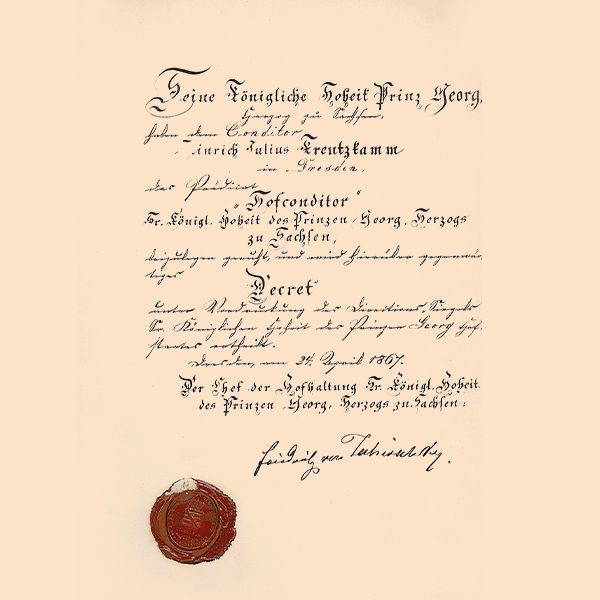 Seine Königliche Hoheit Prinz Georg,
Herzog zu Sachsen,
haben dem Conditor
einrich Julius Kreutzkamm
in Dresden,
das Prädicat
"Hofconditor"
Sr. Königl. Hoheit des Prinzen Georg, Herzogs
zu Sachsen,
beizulegen geruht, und wird hierüber gegenwär-
tiges
Decret
unter Vordruckung des Directions-Siegels
Sr. Königlichen Hoheit des Prinzen Georg Hof-
staates ertheilt.
Dresden, am 24. April 1867.
Der Chef der Hofhaltung Sr. Königl. Hoheit
des Prinzen Georg, Herzogs zu Sachsen:
Friedrich von